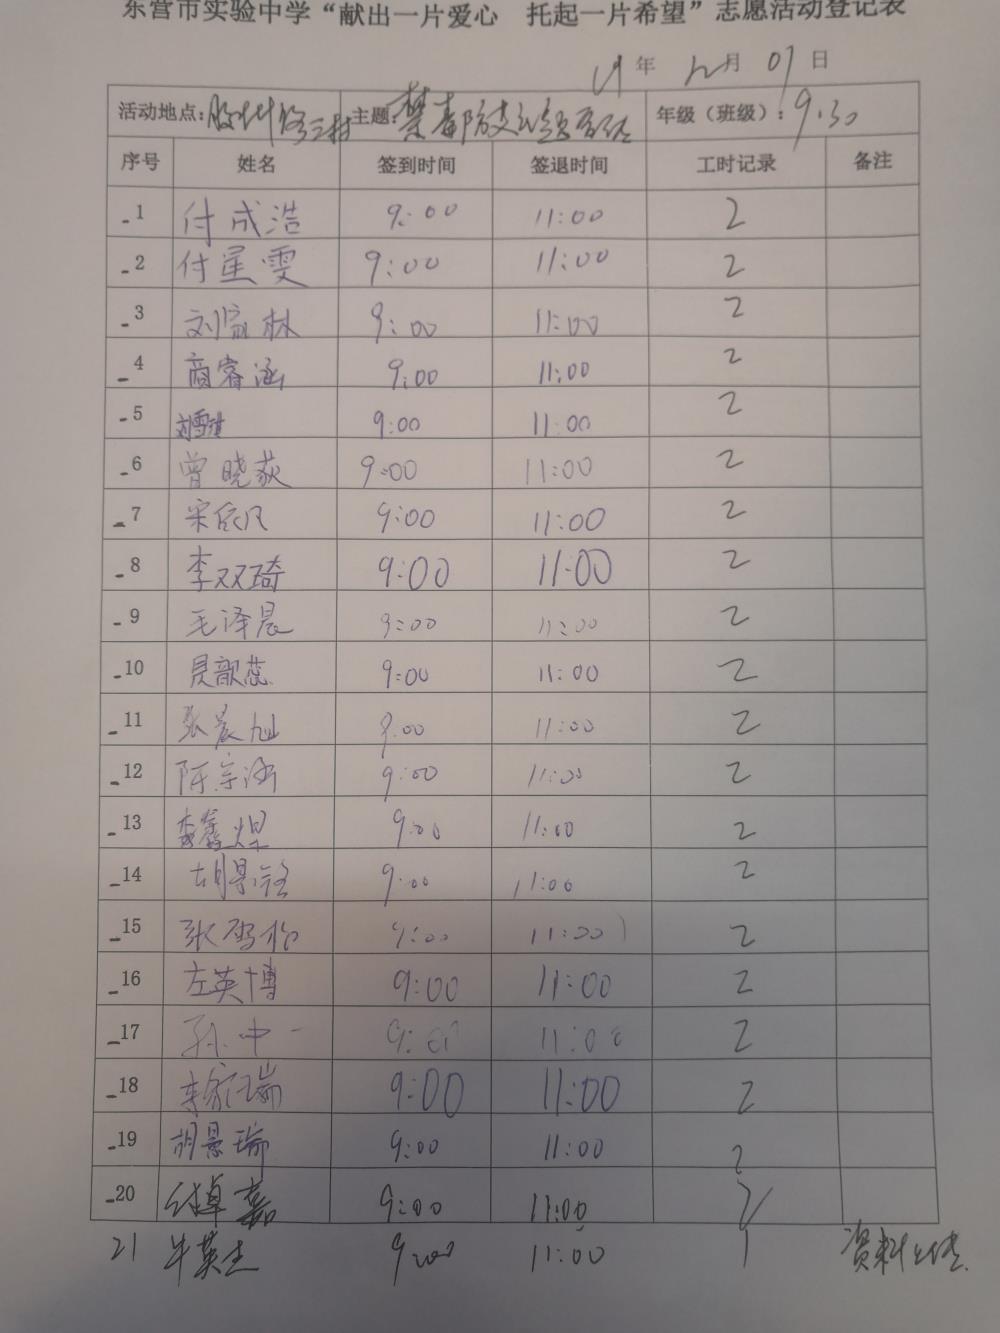 东营市实验中学“献出一片爱心 托起一片希望”志愿活动登记表
19年12月07日
活动地点： 主题： 年级（班级）：9.30
序号 姓名 签到时间 签退时间 工时记录 备注
1 付成浩 9:00 11:00 2
2 付星雯 9:00 11:00 2
3 刘家林 9:00 11:00 2
4 商睿涵 9:00 11:00 2
5 9:00 11:00 2
6 曾晓荻 9:00 11:00 2
7 宋依凡 9:00 11:00 2
8 李双琦 9:00 11:00 2
9 毛泽晨 9:00 11:00 2
10 聂歆蕊 9:00 11:00 2
11 张晨旭 9:00 11:00 2
12 陈宗涵 9:00 11:00 2
13 9:00 11:00 2
14 胡景 9:00 11:00 2
15 张 9:00 11:00 2
16 左英博 9:00 11:00 2
17 孙中一 9:00 11:00 2
18 李家瑞 9:00 11:00 2
19 胡景瑜 9:00 11:00 2
20 付卓嘉 9:00 11:00 2
21 牛英杰 9:00 11:00 1 资料上传